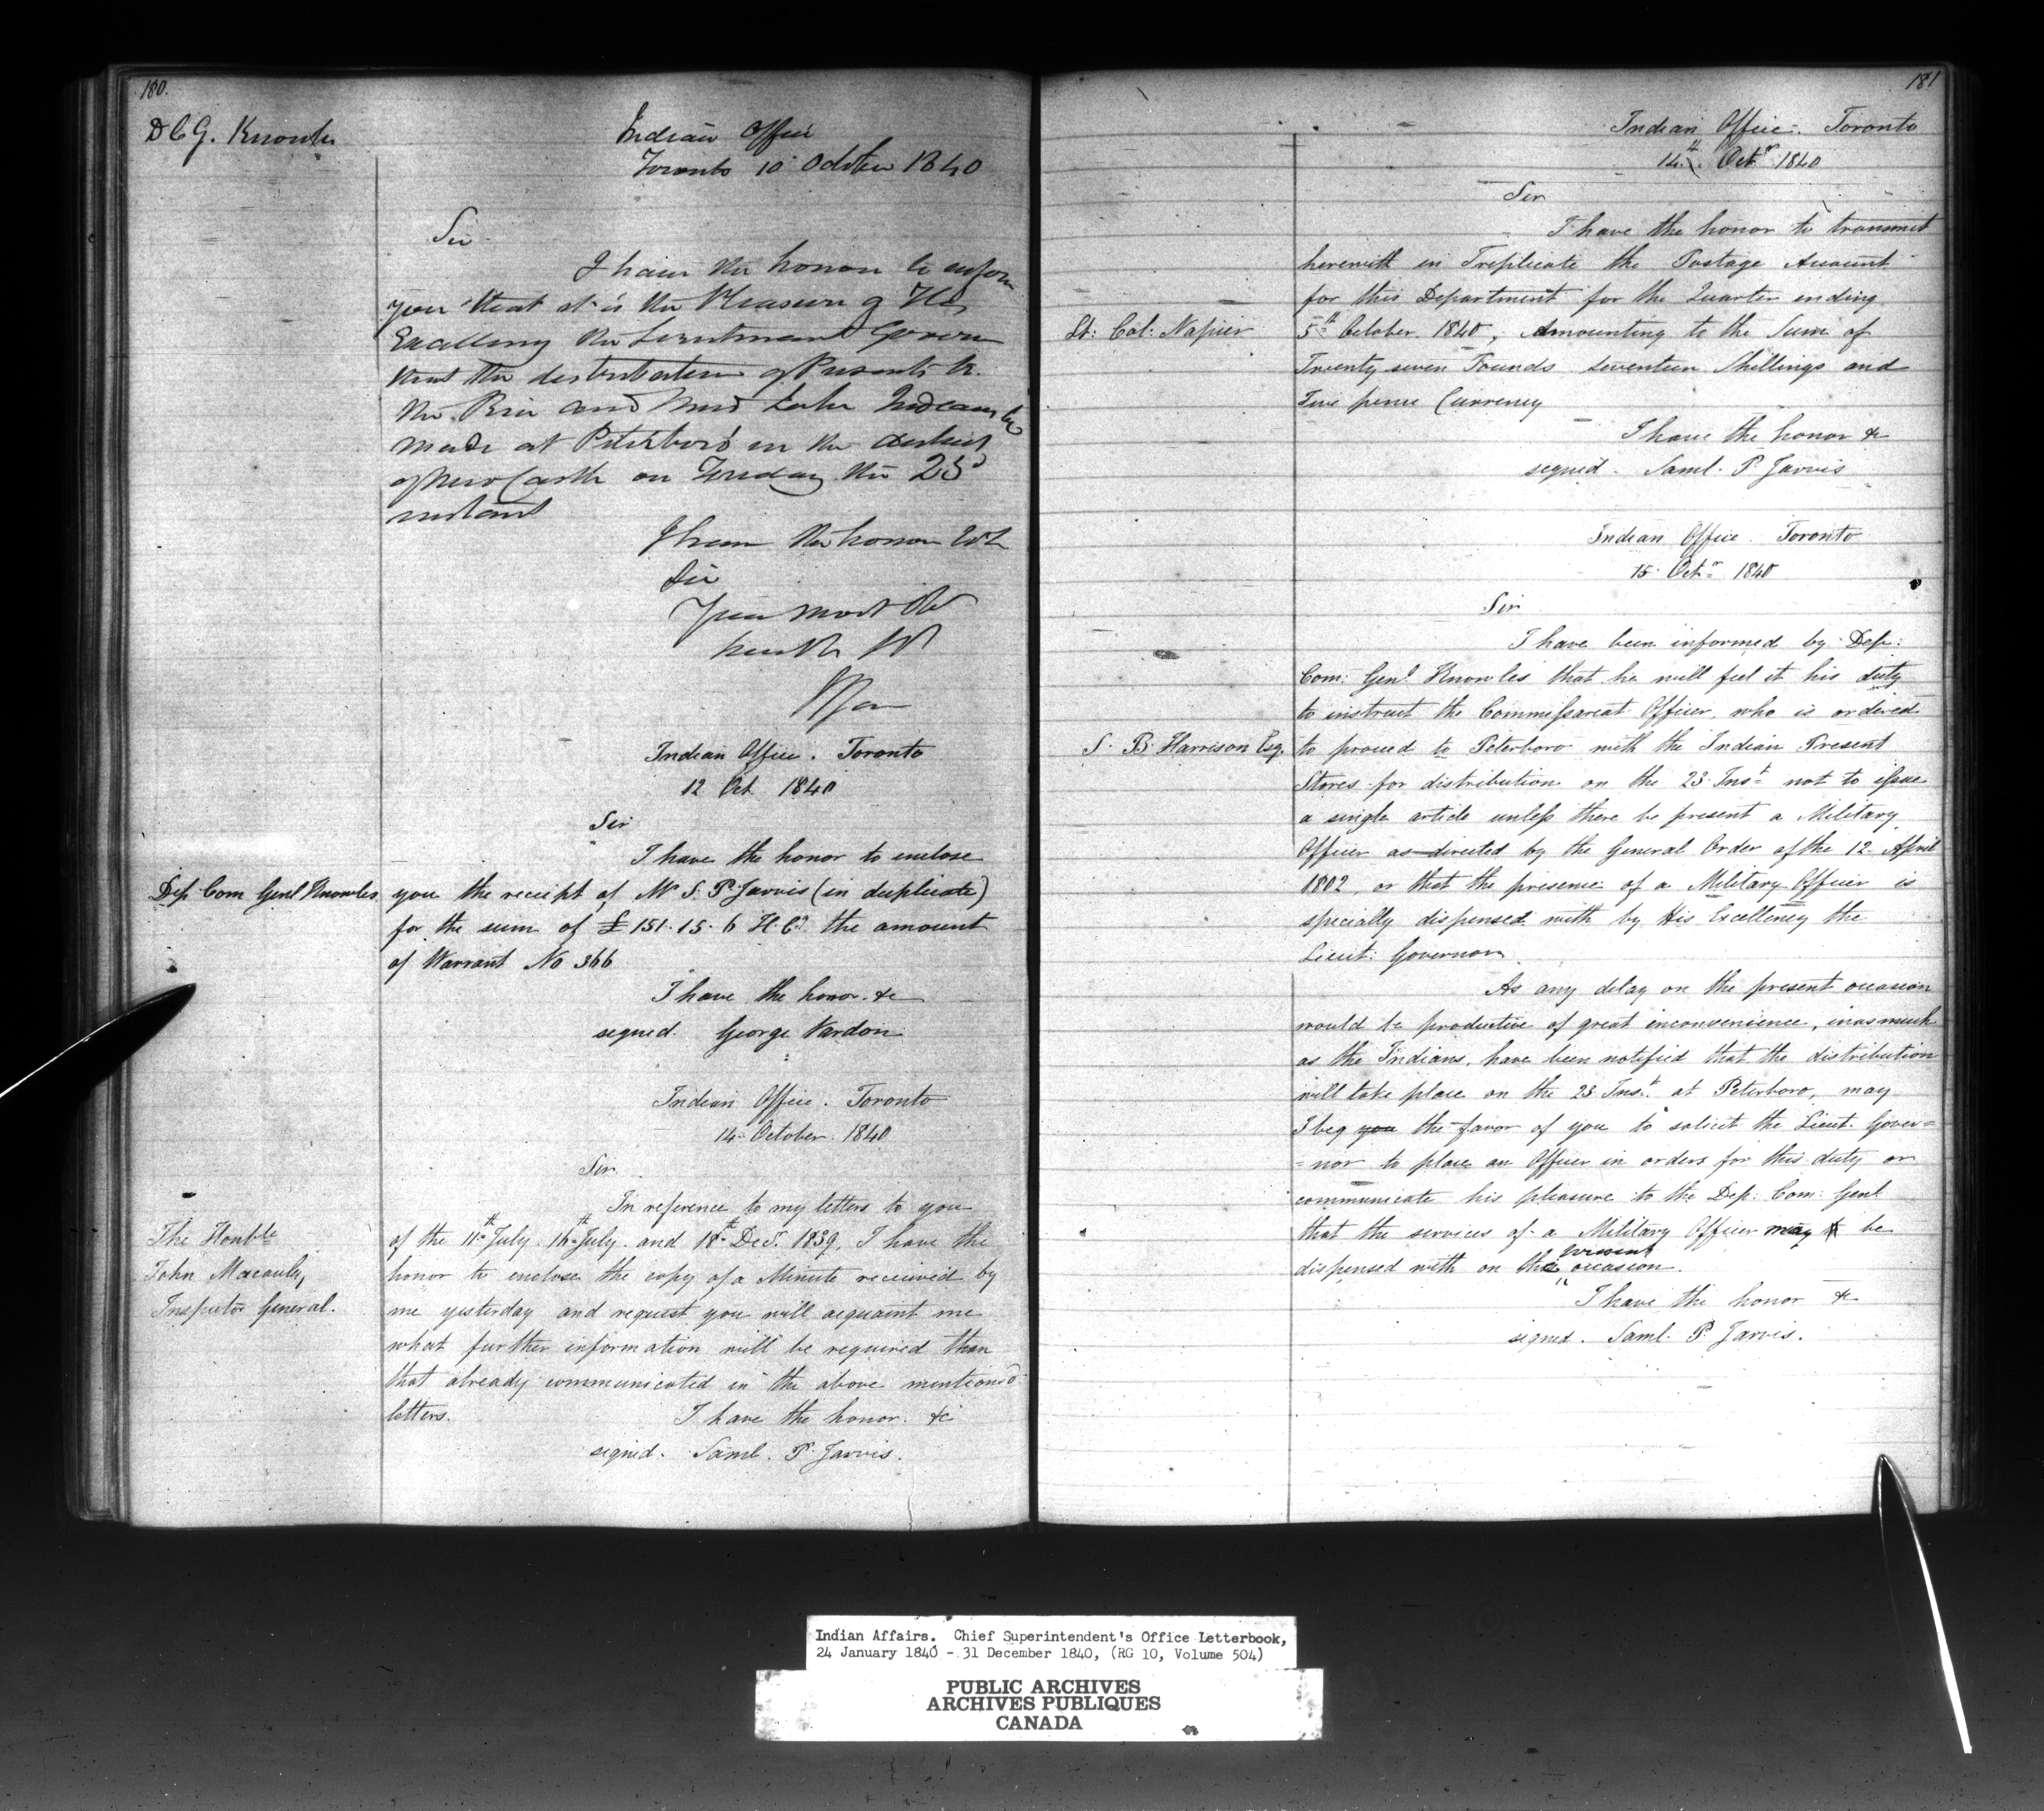 180.
D C G. Knowles
Indian Office
Toronto 10 October 1840
Sir
I have the honor to inform
you that it is the Pleasure of His
Excellency the Lieutenant Govern
that the distribution of Presents to
the Rice and Mud Lake Indians be
made at Peterboro' in the District
of New Castle on Friday the 23d
instant
I have the honor
Sir
Your most Ob
Indian Office. Toronto
12 Oct 1840
Sir
I have the honor to enclose
Dep Com Genl Knowles
you the receipt of Mr S. P. Jarvis (in duplicate)
for the sum of £151.15.6 H. Cy. the amount
of Warrant No 366
I have the honor. &c
signed. George Vardon
Indian Office. Toronto
14 October. 1840
Sir.
In reference to my letters to you
The Honble
John Macaulay,
Inspector General.
of the 11th July. 16th July. and 18th Dec. 1839, I have the
honor to enclose the copy of a Minute received by
me yesterday and request you will acquaint me
what further information will be required than
that already communicated in the above mentiond
letters.
I have the honor. &c
signed. Saml. P. Jarvis.
181
Indian Office. Toronto
14th. Octr 1840
Sir
I have the honor to transmit
herewith in Triplicate the Postage Account
for this Department for the Quarter ending
Lt: Col: Napier
5th October. 1840, Amounting to the Sum of
Twenty seven Pounds Seventeen Shillings and
Five pence Currency
I have the honor &c
signed. Saml. P. Jarvis
Indian Office. Toronto
15. Octr 1840
Sir
I have been informed by Dep:
Com: Genl. Knowles that he will feel it his duty
to instruct the Commissareat Officer, who is ordered
S. B. Harrison Esq.
to proceed to Peterboro with the Indian Present
Stores for distribution on the 23 Inst. not to issue
a single article unless there be present a Military
Officer as directed by the General Order of the 12 April
1802, or that the presence of a Military Officer is
specially dispensed with by His Excellency the
Lieut: Governor.
As any delay on the present occasion
would be productive of great inconvenience, inasmuch
as the Indians, have been notified that the distribution
will take place on the 23 Inst. at Peterboro, may
I beg you the favor of you to solicit the Lieut. Gover=
=nor to place an Officer in orders for this duty or
communicate his pleasure to the Dep: Com: Genl
that the services of a Military Officer may be
dispensed with on the present occasion.
I have the honor &c
signed. Saml. P. Jarvis.
Indian Affairs. Chief Superintendent's Office Letterbook,
24 January 1840 - 31 December 1840, (RG 10, Volume 504)
PUBLIC ARCHIVES
ARCHIVES PUBLIQUES
CANADA